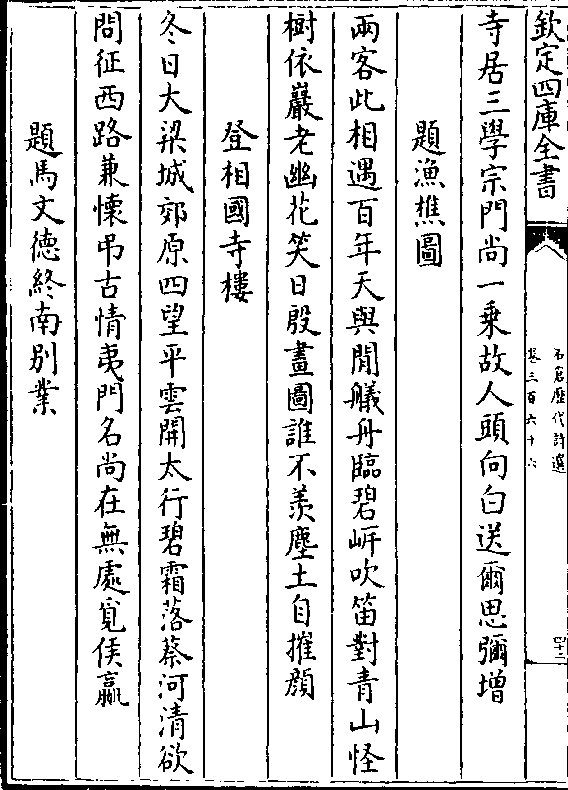 欽定四庫全書
石倉歷代詩選
卷三百六十六
四十三
寺居三學宗門尚一乗故人頭向白送爾思彌增
題漁樵圖
兩客此相遇百年天與閒艤舟臨碧岸吹笛對青山怪
樹依巖老幽花笑日殷畫圖誰不羡塵土自摧顔
登相國寺樓
冬日大梁城郊原四望平雲開太行碧霜落蔡河清欲
問征西路兼懷弔古情夷門名尚在無處覓侯嬴
題馬文德終南别業